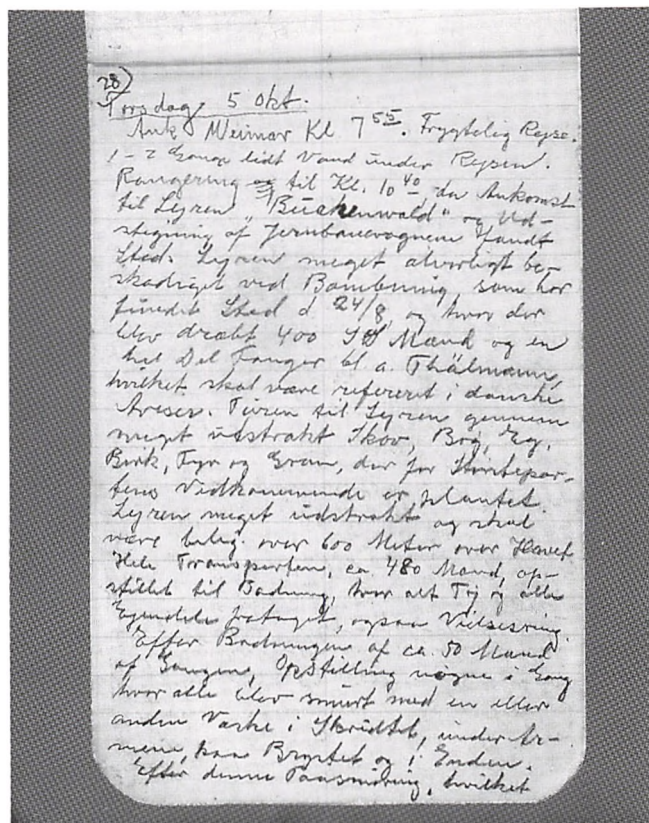 28)
Torsdag, 5 Okt.
Ank Weimar Kl 7 55. Frygtelig Rejse.
1-2 Gange lidt Vand under Rejsen.
Rangering til Kl. 10 40, da Ankomst
til Lejren "Buchenwald" og Ud-
stigning af Jernbanevognene fandt
Sted. Lejren meget alvorligt be-
skadiget ved Bombning, som har
fundet Sted d 24/8, og hvor der
blev dræbt 400 SS Mænd og en
hel Del Fanger bl a. Thälmann,
hvilket skal være refereret i danske
Aviser. Turen til Lejren gennem
meget udstrakt Skov, Bøg, Eg,
Birk, Fyr og Gran, der for Størstepar-
tens Vedkommende er plantet.
Lejren meget udstrakt og skal
være belig. over 600 Meter over Havet
Hele Transporten, ca. 480 Mand, op-
stillet til Badning, hvor alt Tøj og alle
Ejendele frataget, ogsaa Vielsesring.
Efter Badningen af ca. 50 Mand
af Gangen, Opstilling nøgne i Gang
hvor alle blev smurt med en eller
anden Vædske i Skridtet, under Ar-
mene, paa Brystet og i Enden.
Efter denne Paasmøring, hvilket